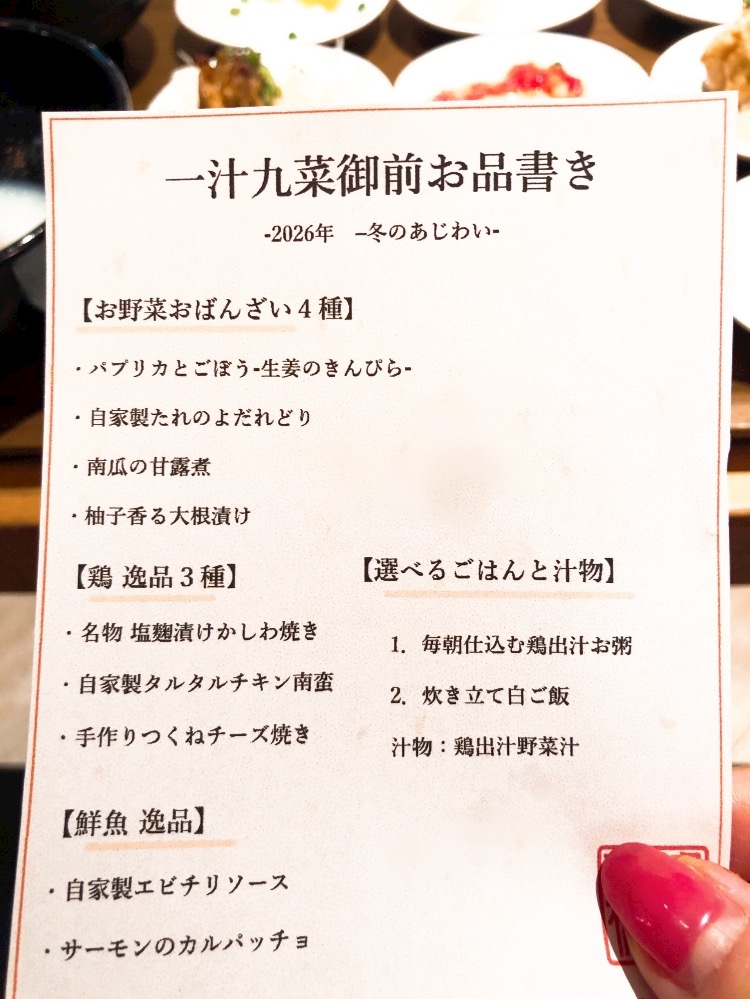 一汁九菜御前お品書き
-2026年　–冬のあじわい-
【お野菜おばんざい４種】
・パプリカとごぼう-生姜のきんぴら-
・自家製たれのよだれどり
・南瓜の甘露煮
・柚子香る大根漬け
【鶏 逸品３種】
・名物 塩麹漬けかしわ焼き
・自家製タルタルチキン南蛮
・手作りつくねチーズ焼き
【選べるごはんと汁物】
1. 毎朝仕込む鶏出汁お粥
2. 炊き立て白ご飯
汁物：鶏出汁野菜汁
【鮮魚 逸品】
・自家製エビチリソース
・サーモンのカルパッチョ